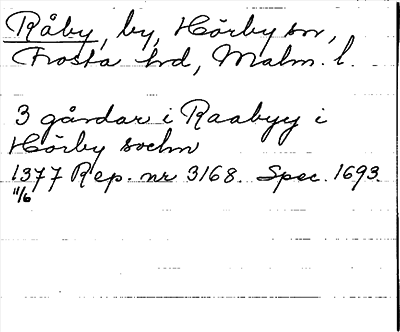 Råby, by, Hörby sn,
Frosta hd, Malm. l.
3 gårdar i Raabyy i
Hörby sochn
1377 Rep. nr 3168. Spec. 1693.
11/6